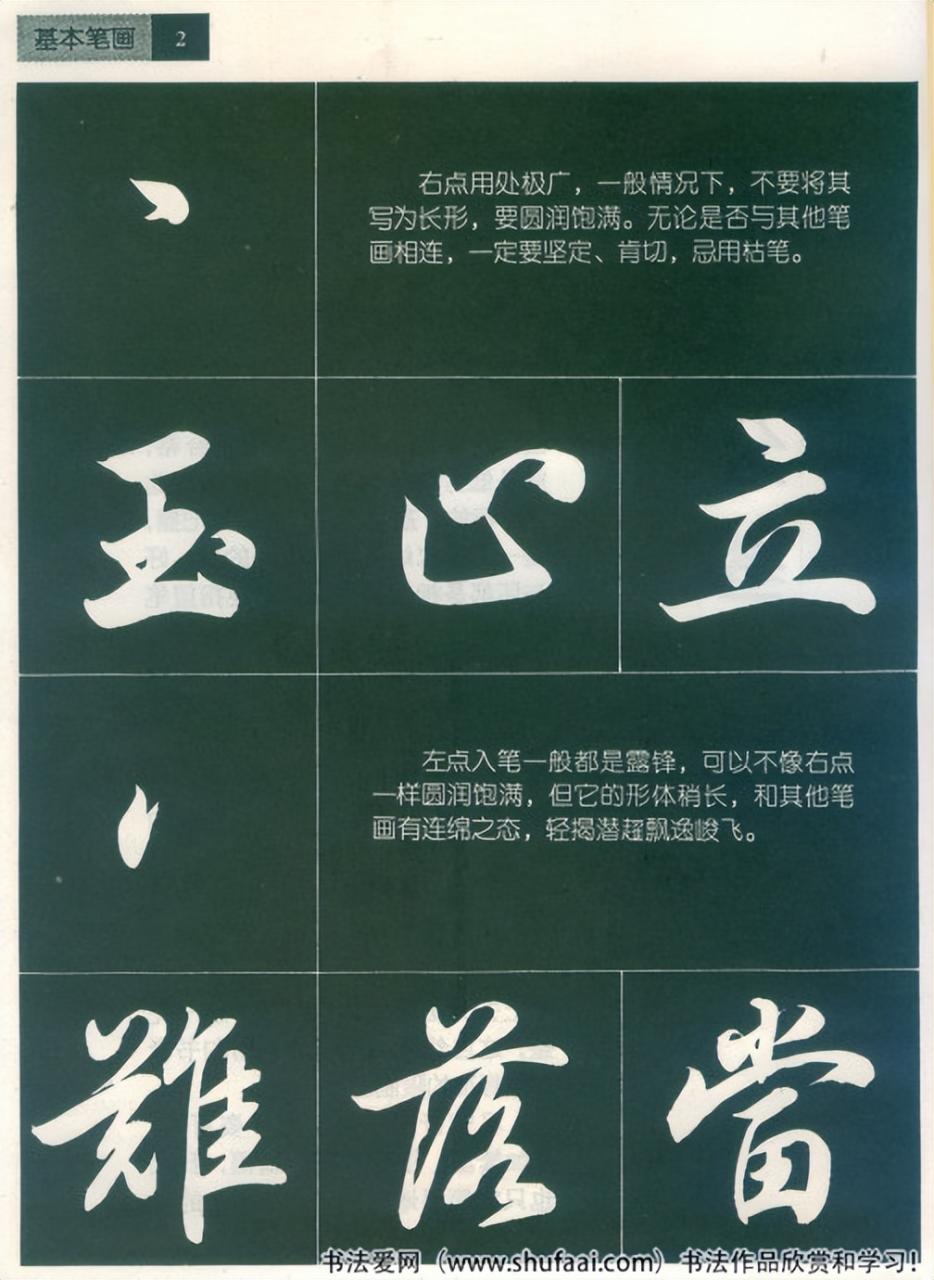 基本笔画 2
右点用处极广，一般情况下，不要将其
写为长形，要圆润饱满。无论是否与其他笔
画相连，一定要坚定、肯切，忌用枯笔。
玉 心 立
左点入笔一般都是露锋，可以不像右点
一样圆润饱满，但它的形体稍长，和其他笔
画有连绵之态，轻揭潜趋飘逸峻飞。
難 落 當
书法爱网（www.shufaai.com）书法作品欣赏和学习！